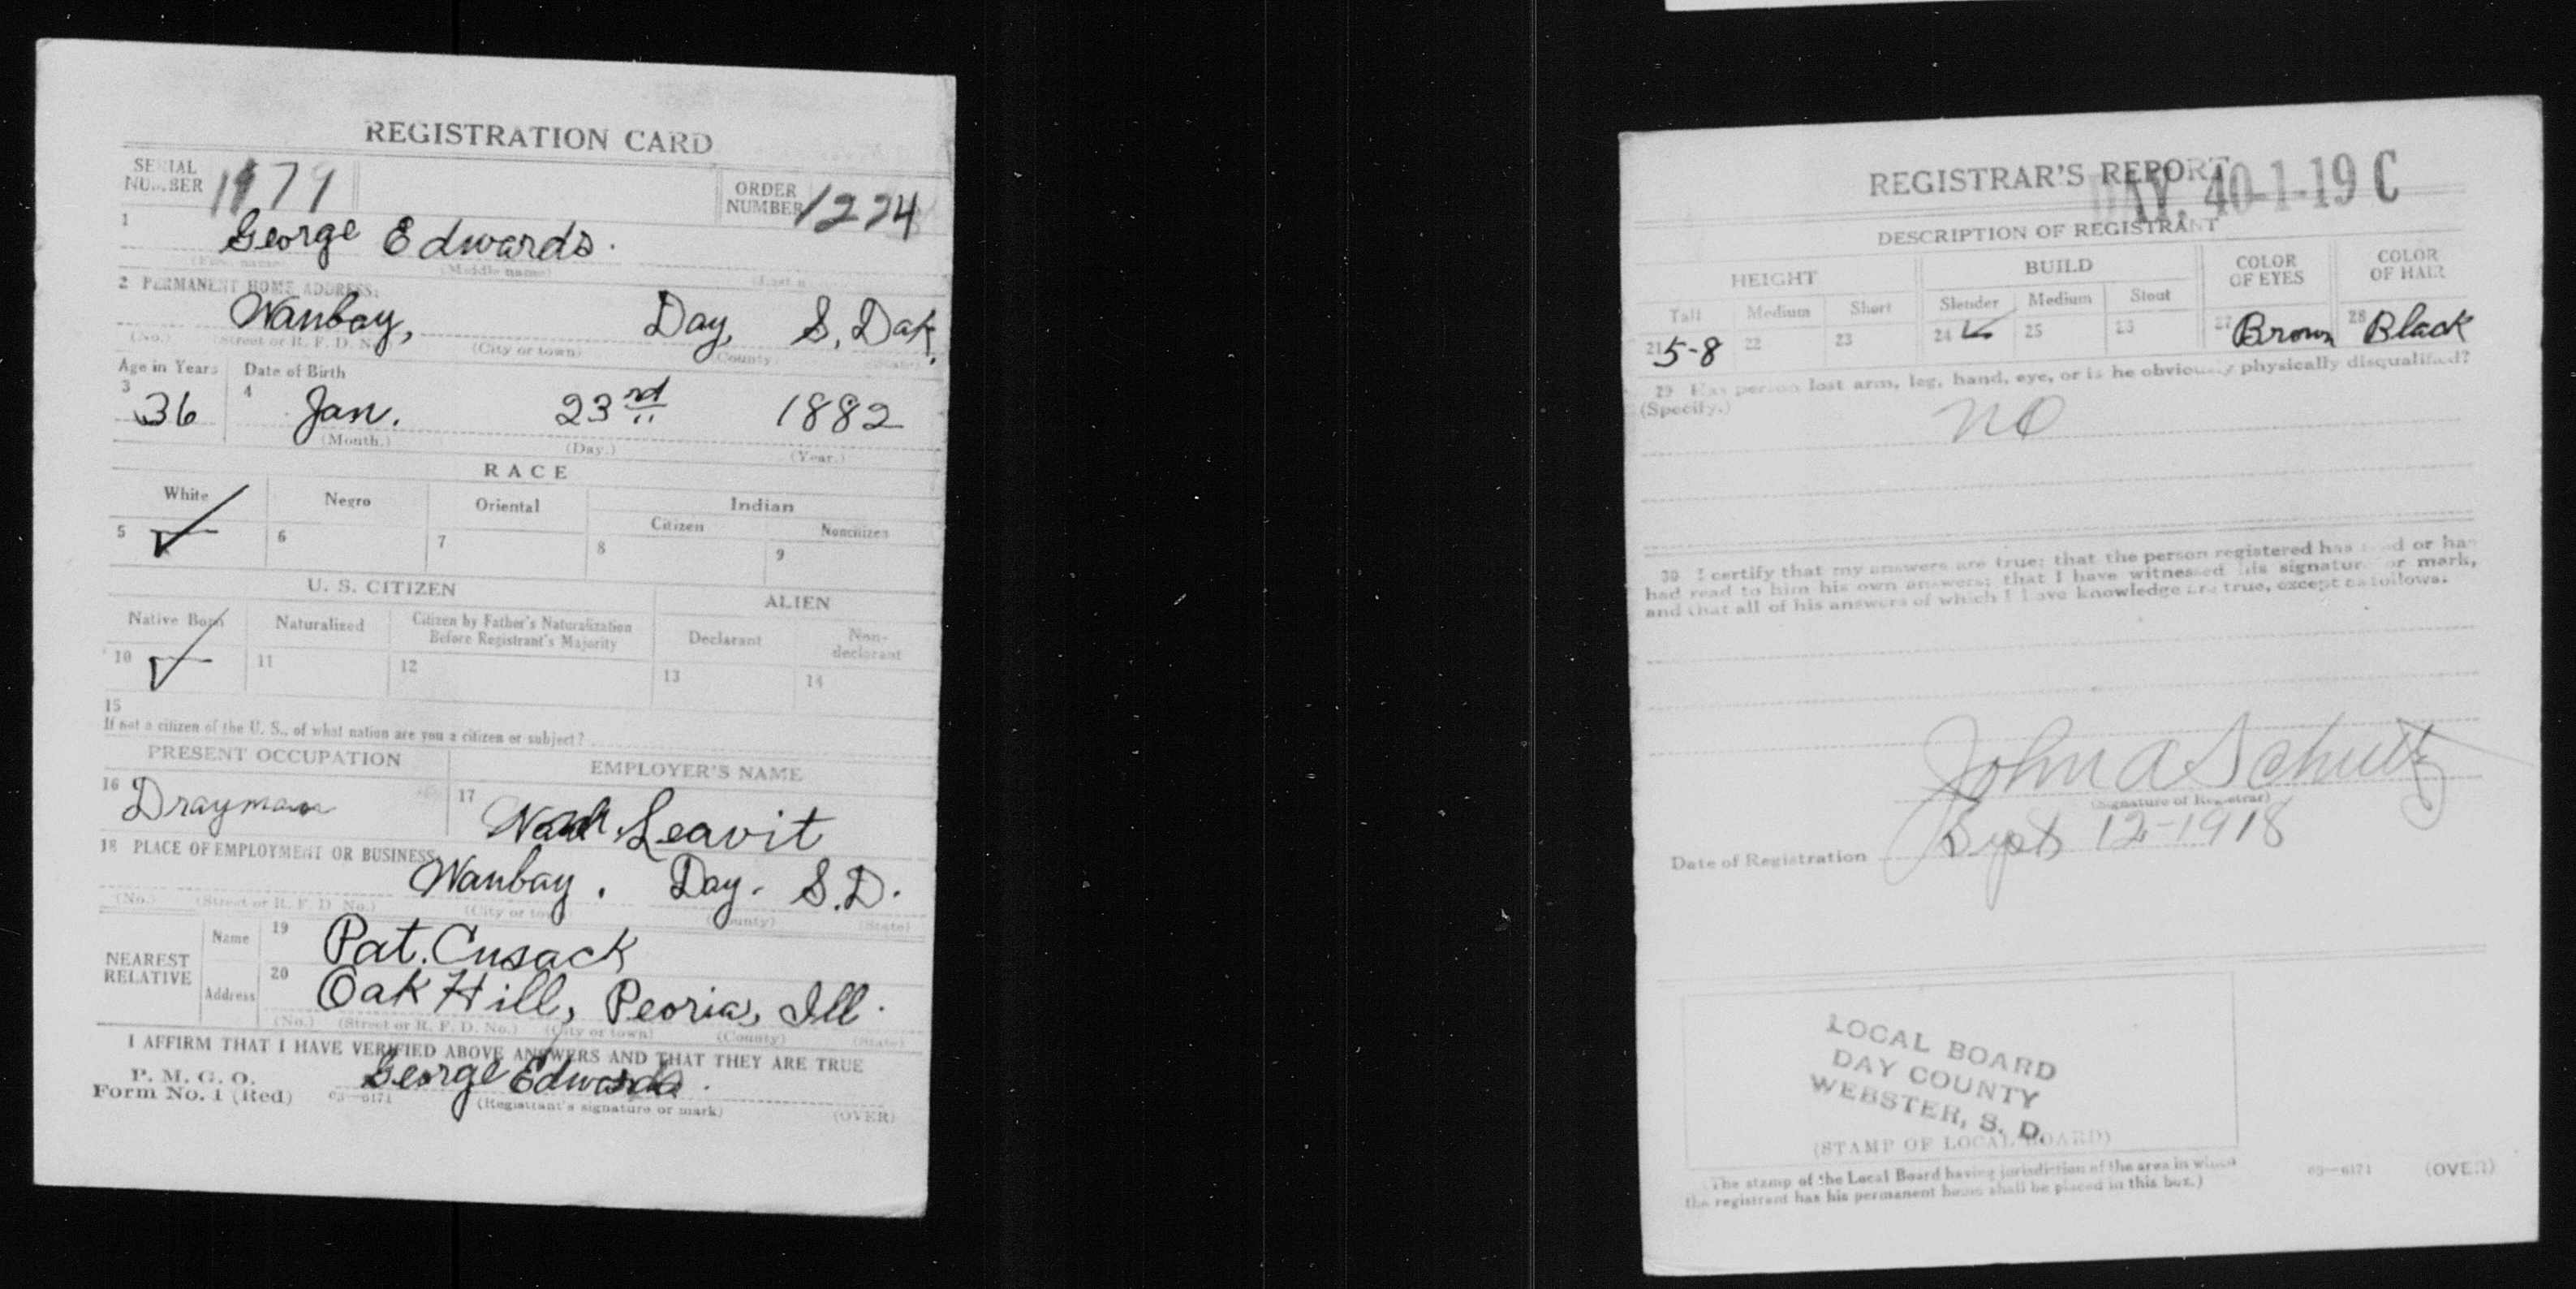 REGISTRATION CARD
SERIAL NUMBER 1179
ORDER NUMBER 1224
1 George Edwards.
(First name) (Middle name) (Last name)
2 PERMANENT HOME ADDRESS:
Wanbay, Day, S. Dak.
(No.) (Street or R. F. D. No.) (City or town) (County) (State)
Age in Years Date of Birth
3 36 4 Jan. 23rd 1882
(Month.) (Day.) (Year.)
RACE
White Negro Oriental Indian
Citizen Noncitizen
5 ✓ 6 7 8 9
U. S. CITIZEN ALIEN
Native Born Naturalized Citizen by Father's Naturalization Before Registrant's Majority Declarant Non-declarant
10 ✓ 11 12 13 14
15
If not a citizen of the U. S., of what nation are you a citizen or subject?
PRESENT OCCUPATION EMPLOYER'S NAME
16 Drayman 17 Leavit
18 PLACE OF EMPLOYMENT OR BUSINESS:
Wanbay. Day. S.D.
(No.) (Street or R. F. D. No.) (City or town) (County) (State)
NEAREST RELATIVE
Name 19 Pat. Cusack
Address 20 Oak Hill, Peoria, Ill.
(No.) (Street or R. F. D. No.) (City or town) (County) (State)
I AFFIRM THAT I HAVE VERIFIED ABOVE ANSWERS AND THAT THEY ARE TRUE
P. M. G. O.
Form No. 1 (Red) 03—6171 George Edwards.
(Registrant's signature or mark) (OVER)
REGISTRAR'S REPORT
DAY. 40-1-19 C
DESCRIPTION OF REGISTRANT
HEIGHT BUILD COLOR OF EYES COLOR OF HAIR
Tall Medium Short Slender Medium Stout
21 5-8 22 23 24 ✓ 25 26 27 Brown 28 Black
29 Has person lost arm, leg, hand, eye, or is he obviously physically disqualified?
(Specify.) no
30 I certify that my answers are true; that the person registered has read or has
had read to him his own answers; that I have witnessed his signature or mark,
and that all of his answers of which I have knowledge are true, except as follows:
John A Schultz
(Signature of Registrar)
Date of Registration Sept 12-1918
LOCAL BOARD
DAY COUNTY
WEBSTER, S. D.
(STAMP OF LOCAL BOARD)
(The stamp of the Local Board having jurisdiction of the area in which
the registrant has his permanent home shall be placed in this box.)
03—6171 (OVER)